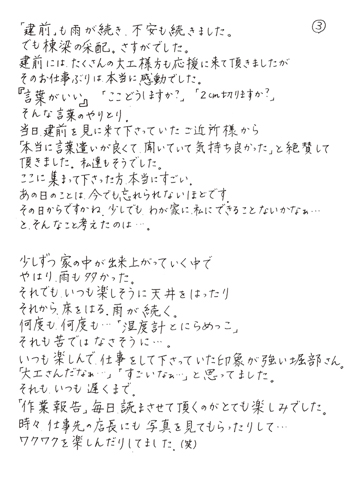 ③
「建前」も雨が続き、不安も続きました。
でも棟梁の采配。さすがでした。
建前には、たくさんの大工様方も応援に来て頂きましたが
そのお仕事ぶりは本当に感動でした。
『言葉がいい』「ここどうしますか？」「2cm切りますか？」
そんな言葉のやりとり。
当日、建前を見に来て下さっていたご近所様から
「本当に言葉遣いが良くて、聞いていて気持ち良かった」と絶賛して
頂きました。私達もそうでした。
ここに集まって下さった方、本当にすごい。
あの日のことは、今でも忘れられないほどです。
その日からですかね、少しでも わが家に、私にできることないかなぁ…
と、そんなこと考えたのは…。
少しずつ 家の中が出来上がっていく中で
やはり、雨も多かった。
それでも、いつも楽しそうに 天井をはったり
それから、床をはる、雨が続く。
何度も、何度も…「湿度計とにらめっこ」
それも苦ではなさそうに…。
いつも楽しんで、仕事をして下さっていた印象が強い堀部さん。
「大工さんだなぁ…」「すごいなぁ…」と思ってました。
それも、いつも 遅くまで。
「作業報告」毎日読まさせて頂くのがとても楽しみでした。
時々 仕事先の店長にも 写真を見てもらったりして…
ワクワクを楽しんだりしてました。(笑)